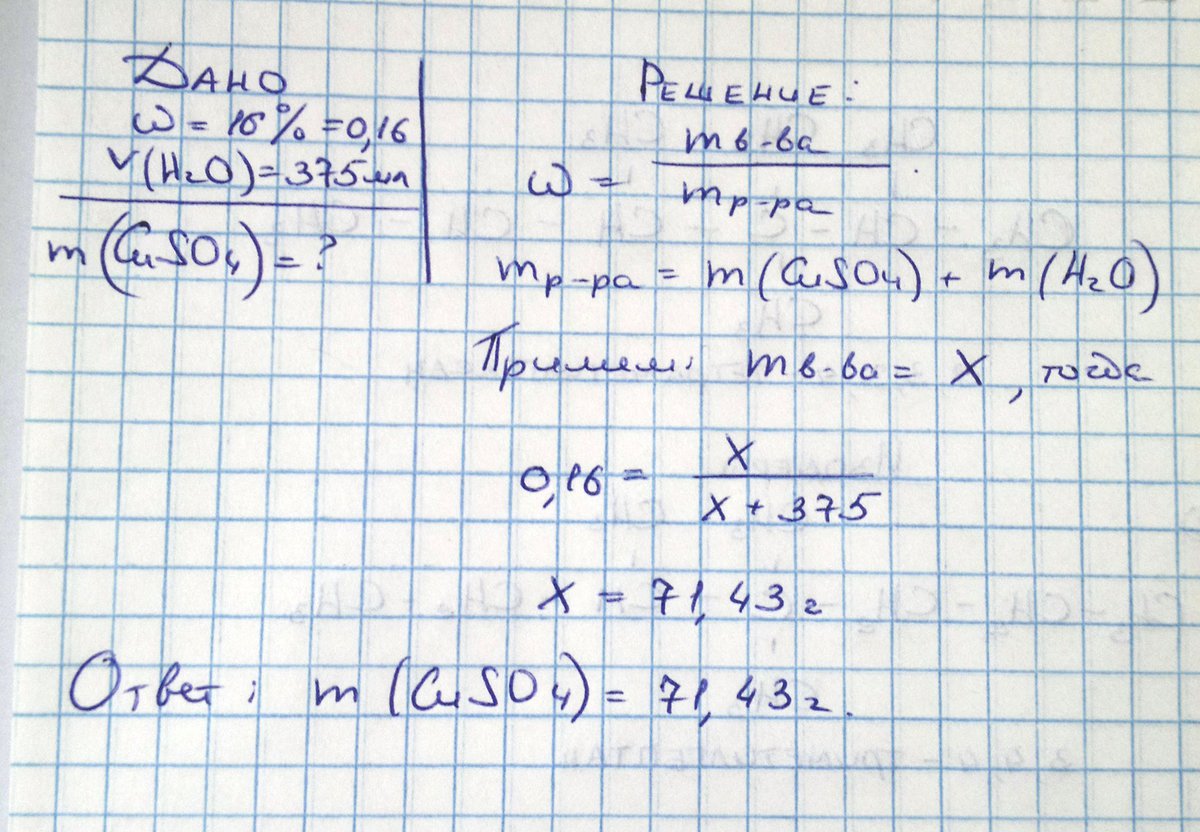 Дано
ω = 16% = 0,16
V(H₂O) = 375 мл
m(CuSO₄) = ?
Решение:
ω = m в-ва / m р-ра
m р-ра = m(CuSO₄) + m(H₂O)
Примем: m в-ва = X, тогда
0,16 = X / X + 375
X = 71,43 г
Ответ: m(CuSO₄) = 71,43 г.